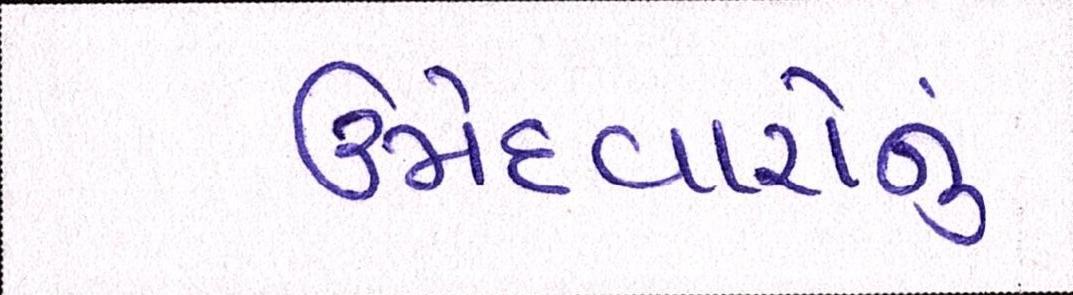 ઉમેદવારોનું